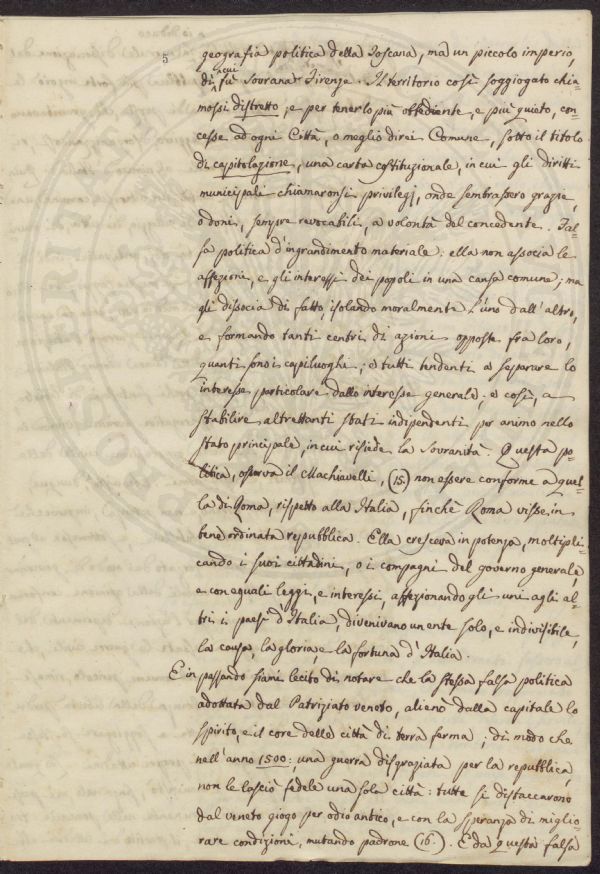 5
geografia politica della Toscana, ma un piccolo imperio,
di cui fù Sovrana Firenze. Il territorio così soggiogato chia=
mossi distretto, e per tenerlo più obbediente, e più quieto, con=
cesse ad ogni Città, o meglio direi Comune, sotto il titolo
di capitolazione, una carta costituzionale, in cui gli diritti
municipali chiamaronsi privilegj, onde sembrassero grazie,
o doni, sempre revocabili, a volontà del concedente. Fal=
sa politica d'ingrandimento materiale: ella non associa le
affezioni, e gli interessi dei popoli in una causa comune; ma
gli dissocia di fatto, isolando moralmente l'uno dall'altro,
e formando tanti centri di azioni opposte fra loro,
quanti sono i capiluoghi; e tutti tendenti a separare lo
interesse particolare dallo interesse generale; e così, a
stabilire altrettanti stati indipendenti per animo nello
stato principale, in cui risiede la Sovranità. Questa po=
litica, osserva il Machiavelli, (15) non essere conforme a quel=
la di Roma, rispetto alla Italia, finchè Roma visse in
bene ordinata repubblica. Ella cresceva in potenza, moltipli=
cando i suoi cittadini, o i compagni del governo generale,
e con eguali leggi, e interessi, affezionando gli uni agli al=
tri i paesi d'Italia, divenivano un ente solo, e indivisibile,
la causa, la gloria, e la fortuna d'Italia.
E in passando siami lecito di notare che la stessa falsa politica
adottata dal Patriziato veneto, alienò dalla capitale lo
spirito, e il core delle città di terra ferma; di modo che
nell'anno 1500: una guerra disgraziata per la repubblica,
non le lasciò fedele una sola città: tutte si distaccarono
dal veneto giogo per odio antico, e con la speranza di miglio=
rare condizioni, mutando padrone (16). E da questa falsa